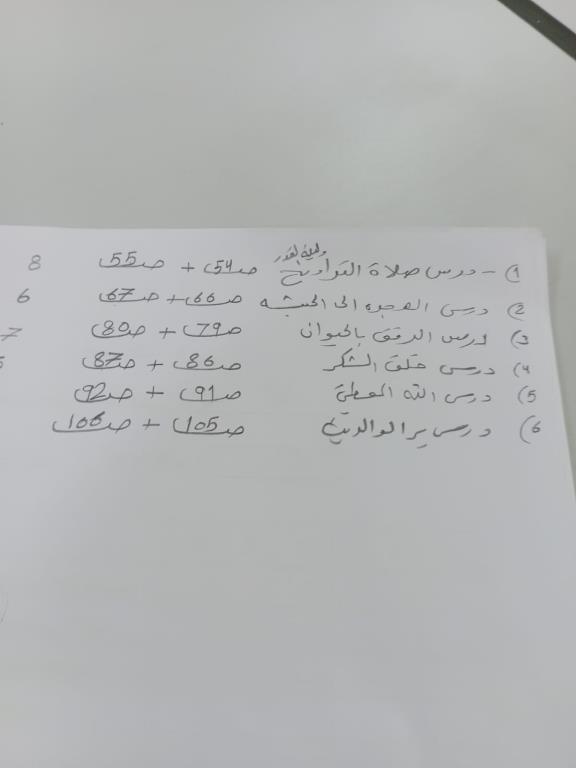 وليلة القدر
1) - درس صلاة التراويح ص54 + ص55 8
2) درس الهجرة الى الحبشه ص66 + ص67 6
3) درس الرفق بالحيوان ص79 + ص80 7
4) درس خلق الشكر ص86 + ص87
5) درس الله المعطي ص91 + ص92
6) درس بر الوالدين ص105 + ص106